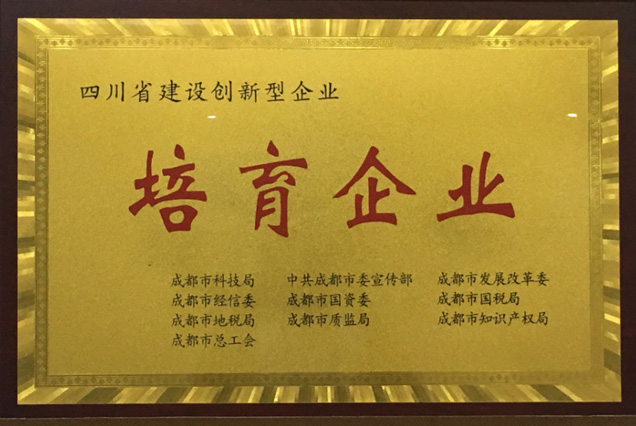 四川省建设创新型企业
培育企业
成都市科技局 中共成都市委宣传部 成都市发展改革委
成都市经信委 成都市国资委 成都市国税局
成都市地税局 成都市质监局 成都市知识产权局
成都市总工会